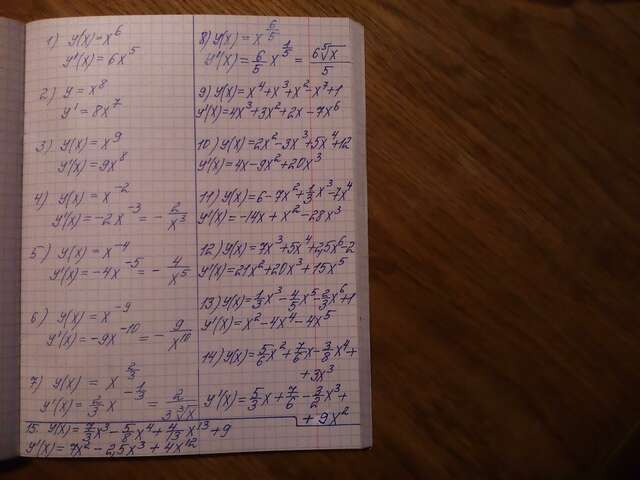 1) y(x)=x⁶
y'(x)=6x⁵
2) y=x⁸
y'=8x⁷
3) y(x)=x⁹
y'(x)=9x⁸
4) y(x)=x⁻²
y'(x)=-2x⁻³=-2/x³
5) y(x)=x⁻⁴
y'(x)=-4x⁻⁵=-4/x⁵
6) y(x)=x⁻⁹
y'(x)=-9x⁻¹⁰=-9/x¹⁰
7) y(x)=x^(2/3)
y'(x)=2/3 x^(-1/3)=2/(3∛x)
8) y(x)=x^(6/5)
y'(x)=6/5 x^(1/5)=6⁵√x/5
9) y(x)=x⁴+x³+x²-x⁷+1
y'(x)=4x³+3x²+2x-7x⁶
10) y(x)=2x²-3x³+5x⁴+12
y'(x)=4x-9x²+20x³
11) y(x)=6-7x²+1/3x³-7x⁴
y'(x)=-14x+x²-28x³
12) y(x)=7x³+5x⁴+2,5x⁶-2
y'(x)=21x²+20x³+15x⁵
13) y(x)=1/3x³-4/5x⁵-2/3x⁶+1
y'(x)=x²-4x⁴-4x⁵
14) y(x)=5/6x²+7/6x-3/8x⁴+
+3x³
y'(x)=5/3x+7/6-3/2x³+
+9x²
15. y(x)=7/3x³-5/8x⁴+4/13x¹³+9
y'(x)=7x²-2,5x³+4x¹²